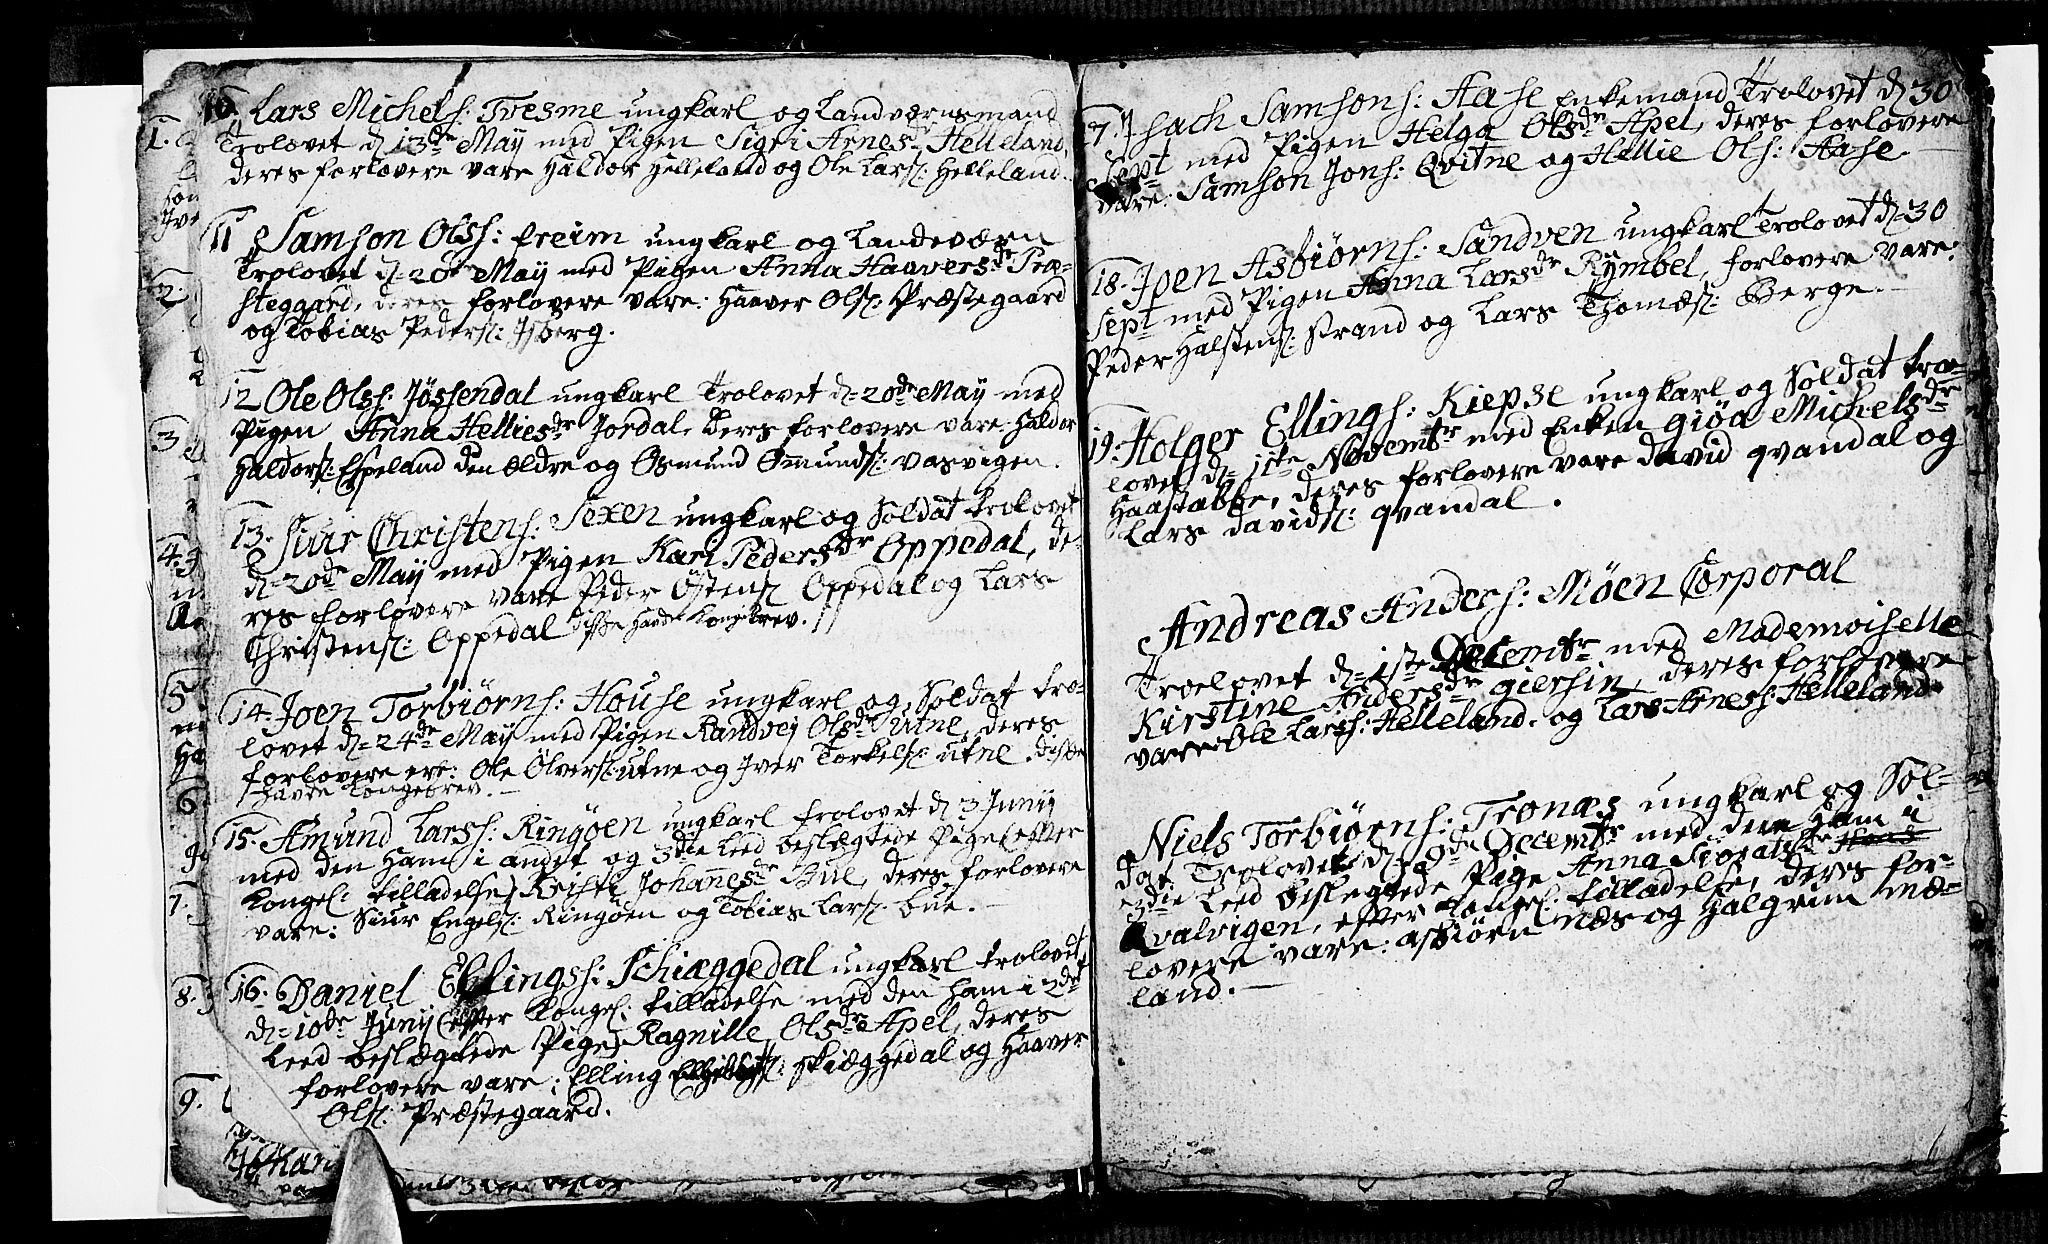 10. Lars Michels: Tresme ungkarl og Landværnsmand
Trolovet d 13de May med Pigen Sigri Arnesdr Helleland,
deres forlovere vare Haldor Helleland og Ole Lars: Helleland.
11 Samson Olss: freim ungkarl og Landeværn
Trolovet d= 20de May med Pigen Anna Haaversdr Præ-
stegaard, deres forlovere vare: Haaver Ols: Præstegaard
og Tobias Peders: Isberg.
12 Ole Olss: Jøssendal ungkarl Trolovet d= 20de May med
Pigen Anna Helliesdr Jordal. Deres forlovere vare: Haldor
Haldors: Espeland den Eldre og Osmund Omunds: Vasvigen.
13. Siur Christens: Sexen ungkarl og Soldat trolovet
d= 20de May med Pigen Kari Pedersdr Oppedal, de-
res forlovere vare Peder Østens: Oppedal og Lars
Christens: Oppedal disse havde Kongebrev.
14. Joen Torbiørns: House ungkarl og Soldat tro-
lovet d= 24de May med Pigen Randvej Olsdr Utne, deres
forlovere ere: Ole Ølvers: utne og Iver Torkels: utne. disse
havde Kongebrev.
15. Amund Larss: Ringøen ungkarl trolovet d 3 Junij
med den Ham i andet og 3die Leed beslægtede Pige (efter
Kongel: tilladelse) Kristi Johannesdr Bue, deres forlovere
vare: Siur Engels: Ringøen og Tobias Lars: bue.
16. Daniel Ellingss: Schiæggedal ungkarl trolovet
d= 10de Junij (efter Kongel: tilladelse med den ham i 2det
Leed beslægtede Pige) Ragnille Olsdr Apel, deres
forlovere vare: Elling skiæggedal og Haaver
Ols: Præstegaard.
17. Isach Samsons: Aase Enkemand Trolovet d 30
Sept med Pigen Helga Olsdr Apel, deres forlovere
vare: Samson Jons: Qvitne og Hellie Ols: Aase.
18. Joen Asbiørns: Sandven ungkarl Trolovet d= 30
Sept med Pigen Anna Larsdr Rymbel, forlovere vare:
Peder Halstens: Strand og Lars Thomæs: Berge.
19. Holger Ellings: Kiepse ungkarl og Soldat tro-
lovet d= 11te Novembr med Enken giøa Michelsdr
Haastabbe, deres forlovere vare david qvandal og
Lars davids: qvandal.
Andreas Anders: Møen Corporal
Troelovet d= 1ste Decembr med Mademoiselle
Kirstine Andersdr giersin, deres forlovere
vare Ole Larss: Helleland. og Lars Arness: Helleland.
Niels Torbiørns: Tronæs ungkarl og Sol-
dat Trolovet d= 8de Decembr med den Ham i
3die Leed beslegtede Pige Anna
Qvalvigen, efter Kongel: tilladelse, deres for-
lovere vare: asbiørn næs og Halgrim mæ-
land.